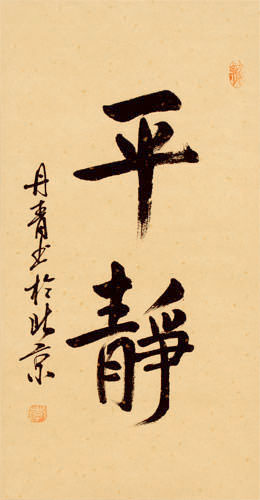 平靜
丹青书於北京